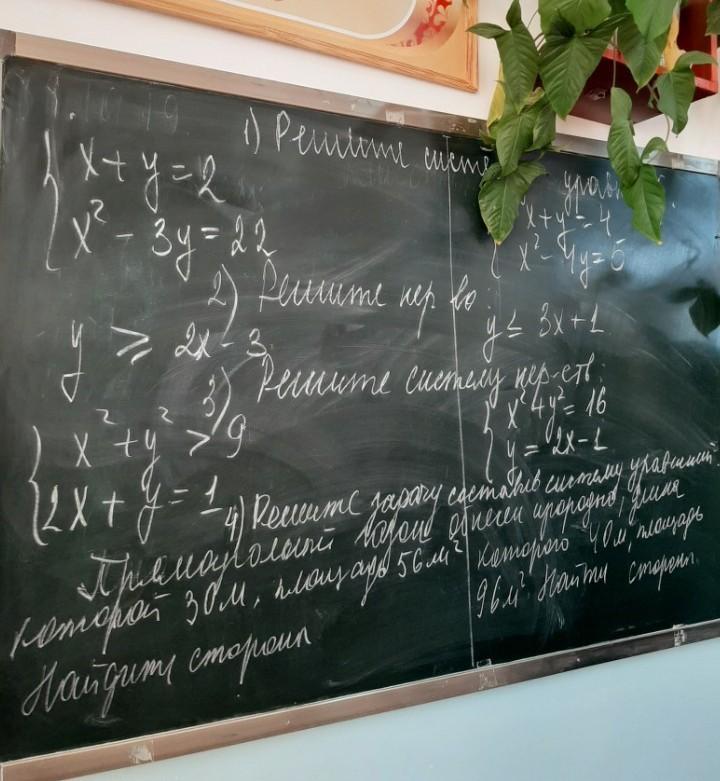 1) Решите систе уравн.
{ x + y = 2
x² - 3y = 22
x + y = 4
x² - 4y = 5
2) Решите нер-во:
y ≥ 2x - 3
y ≤ 3x + 1
3) Решите систему нер-ств:
{ x² + y² > 9
2x + y = 1
{ x² + y² = 16
y = 2x - 1
4) Решите задачу составив систему уравнений
Прямоугольный обнесен изгородью, длина
которой 30 м, площадь 56 м²
Найдите стороны
которого 40 м, площадь
96 м². Найти стороны.